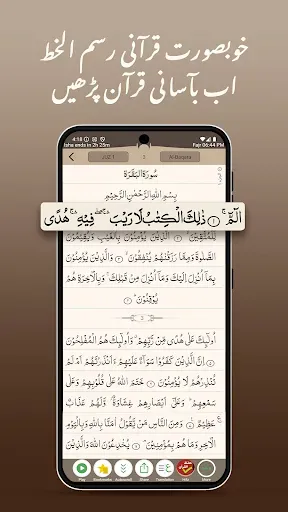 خوبصورت قرآنی رسم الخط
اب بآسانی قرآن پڑھیں
4:18
Isha ends in 2h 25m Fajr 06:44 PM
3 Al-Baqara
سُورَةُ الْبَقَرَةِ
بِسْمِ اللّٰهِ الرَّحْمٰنِ الرَّحِيْمِ
الٓمّٓ ۚ ١ ذٰلِكَ الْكِتٰبُ لَا رَيْبَ ۛ فِيْهِ ۛ هُدًى
لِّلْمُتَّقِيْنَ ٢ الَّذِيْنَ يُؤْمِنُوْنَ بِالْغَيْبِ وَيُقِيْمُوْنَ
الصَّلٰوةَ وَمِمَّا رَزَقْنٰهُمْ يُنْفِقُوْنَ ٣ وَالَّذِيْنَ يُؤْمِنُوْنَ
بِمَآ اُنْزِلَ اِلَيْكَ وَمَآ اُنْزِلَ مِنْ قَبْلِكَ ۚ وَبِالْاٰخِرَةِ هُمْ
يُوْقِنُوْنَ ٤
3
اُولٰٓئِكَ عَلٰى هُدًى مِّنْ رَّبِّهِمْ ۙ وَاُولٰٓئِكَ هُمُ الْمُفْلِحُوْنَ
٥ اِنَّ الَّذِيْنَ كَفَرُوْا سَوَآءٌ عَلَيْهِمْ ءَاَنْذَرْتَهُمْ اَمْ لَمْ
تُنْذِرْهُمْ لَا يُؤْمِنُوْنَ ٦ خَتَمَ اللّٰهُ عَلٰى قُلُوْبِهِمْ وَعَلٰى
سَمْعِهِمْ ؕ وَعَلٰٓى اَبْصَارِهِمْ غِشَاوَةٌ ۫ وَّلَهُمْ عَذَابٌ
عَظِيْمٌ ٧ وَمِنَ النَّاسِ مَنْ يَّقُوْلُ اٰمَنَّا بِاللّٰهِ وَبِالْيَوْمِ
الْاٰخِرِ وَمَا هُمْ بِمُؤْمِنِيْنَ ٨ يُخٰدِعُوْنَ اللّٰهَ وَالَّذِيْنَ
Play Bookmarks Autoscroll Share Translation Hifz More